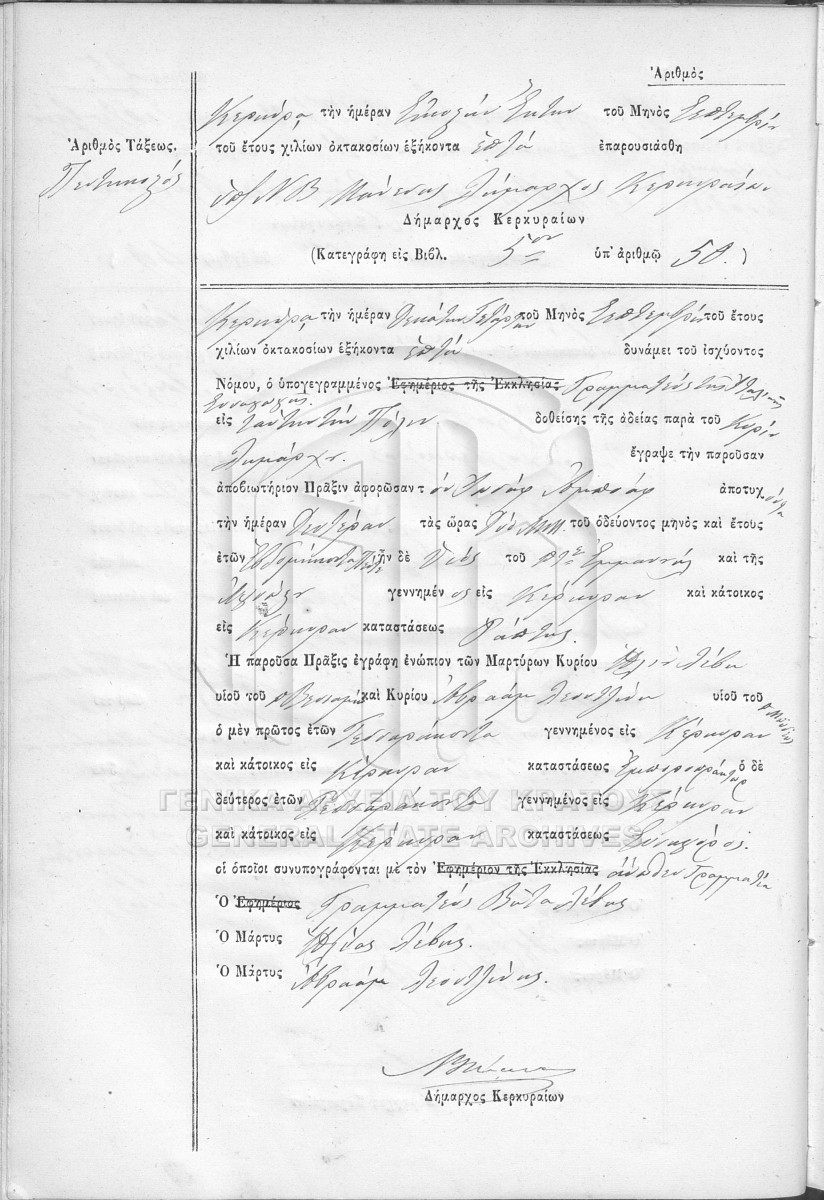 Ἀριθμὸς
Κερκύρᾳ τὴν ἡμέραν Εἰκοστὴν Ἕκτην τοῦ Μηνὸς Σεπτεμβρίου
Ἀριθμὸς Τάξεως.
τοῦ ἔτους χιλίων ὀκτακοσίων ἑξήκοντα ἑπτὰ ἐπαρουσιάσθη
Πεντηκοστός
Δήμαρχος Κερκυραίων
Δήμαρχος Κερκυραίων
(Κατεγράφη εἰς Βιβλ. 5ον ὑπ' ἀριθμῷ 50.)
Κερκύρᾳ τὴν ἡμέραν Δεκάτην Τετάρτην τοῦ Μηνὸς Σεπτεμβρίου τοῦ ἔτους
χιλίων ὀκτακοσίων ἑξήκοντα ἑπτὰ δυνάμει τοῦ ἰσχύοντος
Νόμου, ὁ ὑπογεγραμμένος Ἐφημέριος τῆς Ἐκκλησίας Γραμματεὺς τῆς Ἰταλικῆς
Συναγωγῆς
εἰς ταύτην τὴν Πόλιν δοθείσης τῆς ἀδείας παρὰ τοῦ Κυρίου
Δημάρχου. ἔγραψε τὴν παροῦσαν
ἀποβιωτήριον Πρᾶξιν ἀφορῶσαν τὸν Ἰωσὴφ ἀποτυχ
τὴν ἡμέραν Δευτέραν τὰς ὥρας Δύο Μ.Μ. τοῦ ὁδεύοντος μηνὸς καὶ ἔτους
ἐτῶν Ἑβδομήκοντα Πέντε ἦν δὲ Υἱὸς τοῦ Ἐμμανουὴλ καὶ τῆς
γεννημένος εἰς Κέρκυραν καὶ κάτοικος
εἰς Κέρκυραν καταστάσεως Ράπτης.
Ἡ παροῦσα Πρᾶξις ἐγράφη ἐνώπιον τῶν Μαρτύρων Κυρίου Ἠλία Λέβη
υἱοῦ τοῦ Βενιαμὶν καὶ Κυρίου Ἀβραὰμ υἱοῦ τοῦ
ὁ μὲν πρῶτος ἐτῶν Τεσσαράκοντα γεννημένος εἰς Κέρκυραν
καὶ κάτοικος εἰς Κέρκυραν καταστάσεως ὁ δὲ
δεύτερος ἐτῶν Τεσσαράκοντα γεννημένος εἰς Κέρκυραν
ΓΕΝΙΚΑ ΑΡΧΕΙΑ ΤΟΥ ΚΡΑΤΟΥΣ
GENERAL STATE ARCHIVES
καὶ κάτοικος εἰς Κέρκυραν καταστάσεως
οἱ ὁποῖοι συνυπογράφονται μὲ τὸν Ἐφημέριον τῆς Ἐκκλησίας ἄνωθεν Γραμματέα
Ὁ Ἐφημέριος Γραμματεὺς Βίτα Λέβης
Ὁ Μάρτυς Ἠλίας Λέβης.
Ὁ Μάρτυς Ἀβραὰμ
Δήμαρχος Κερκυραίων